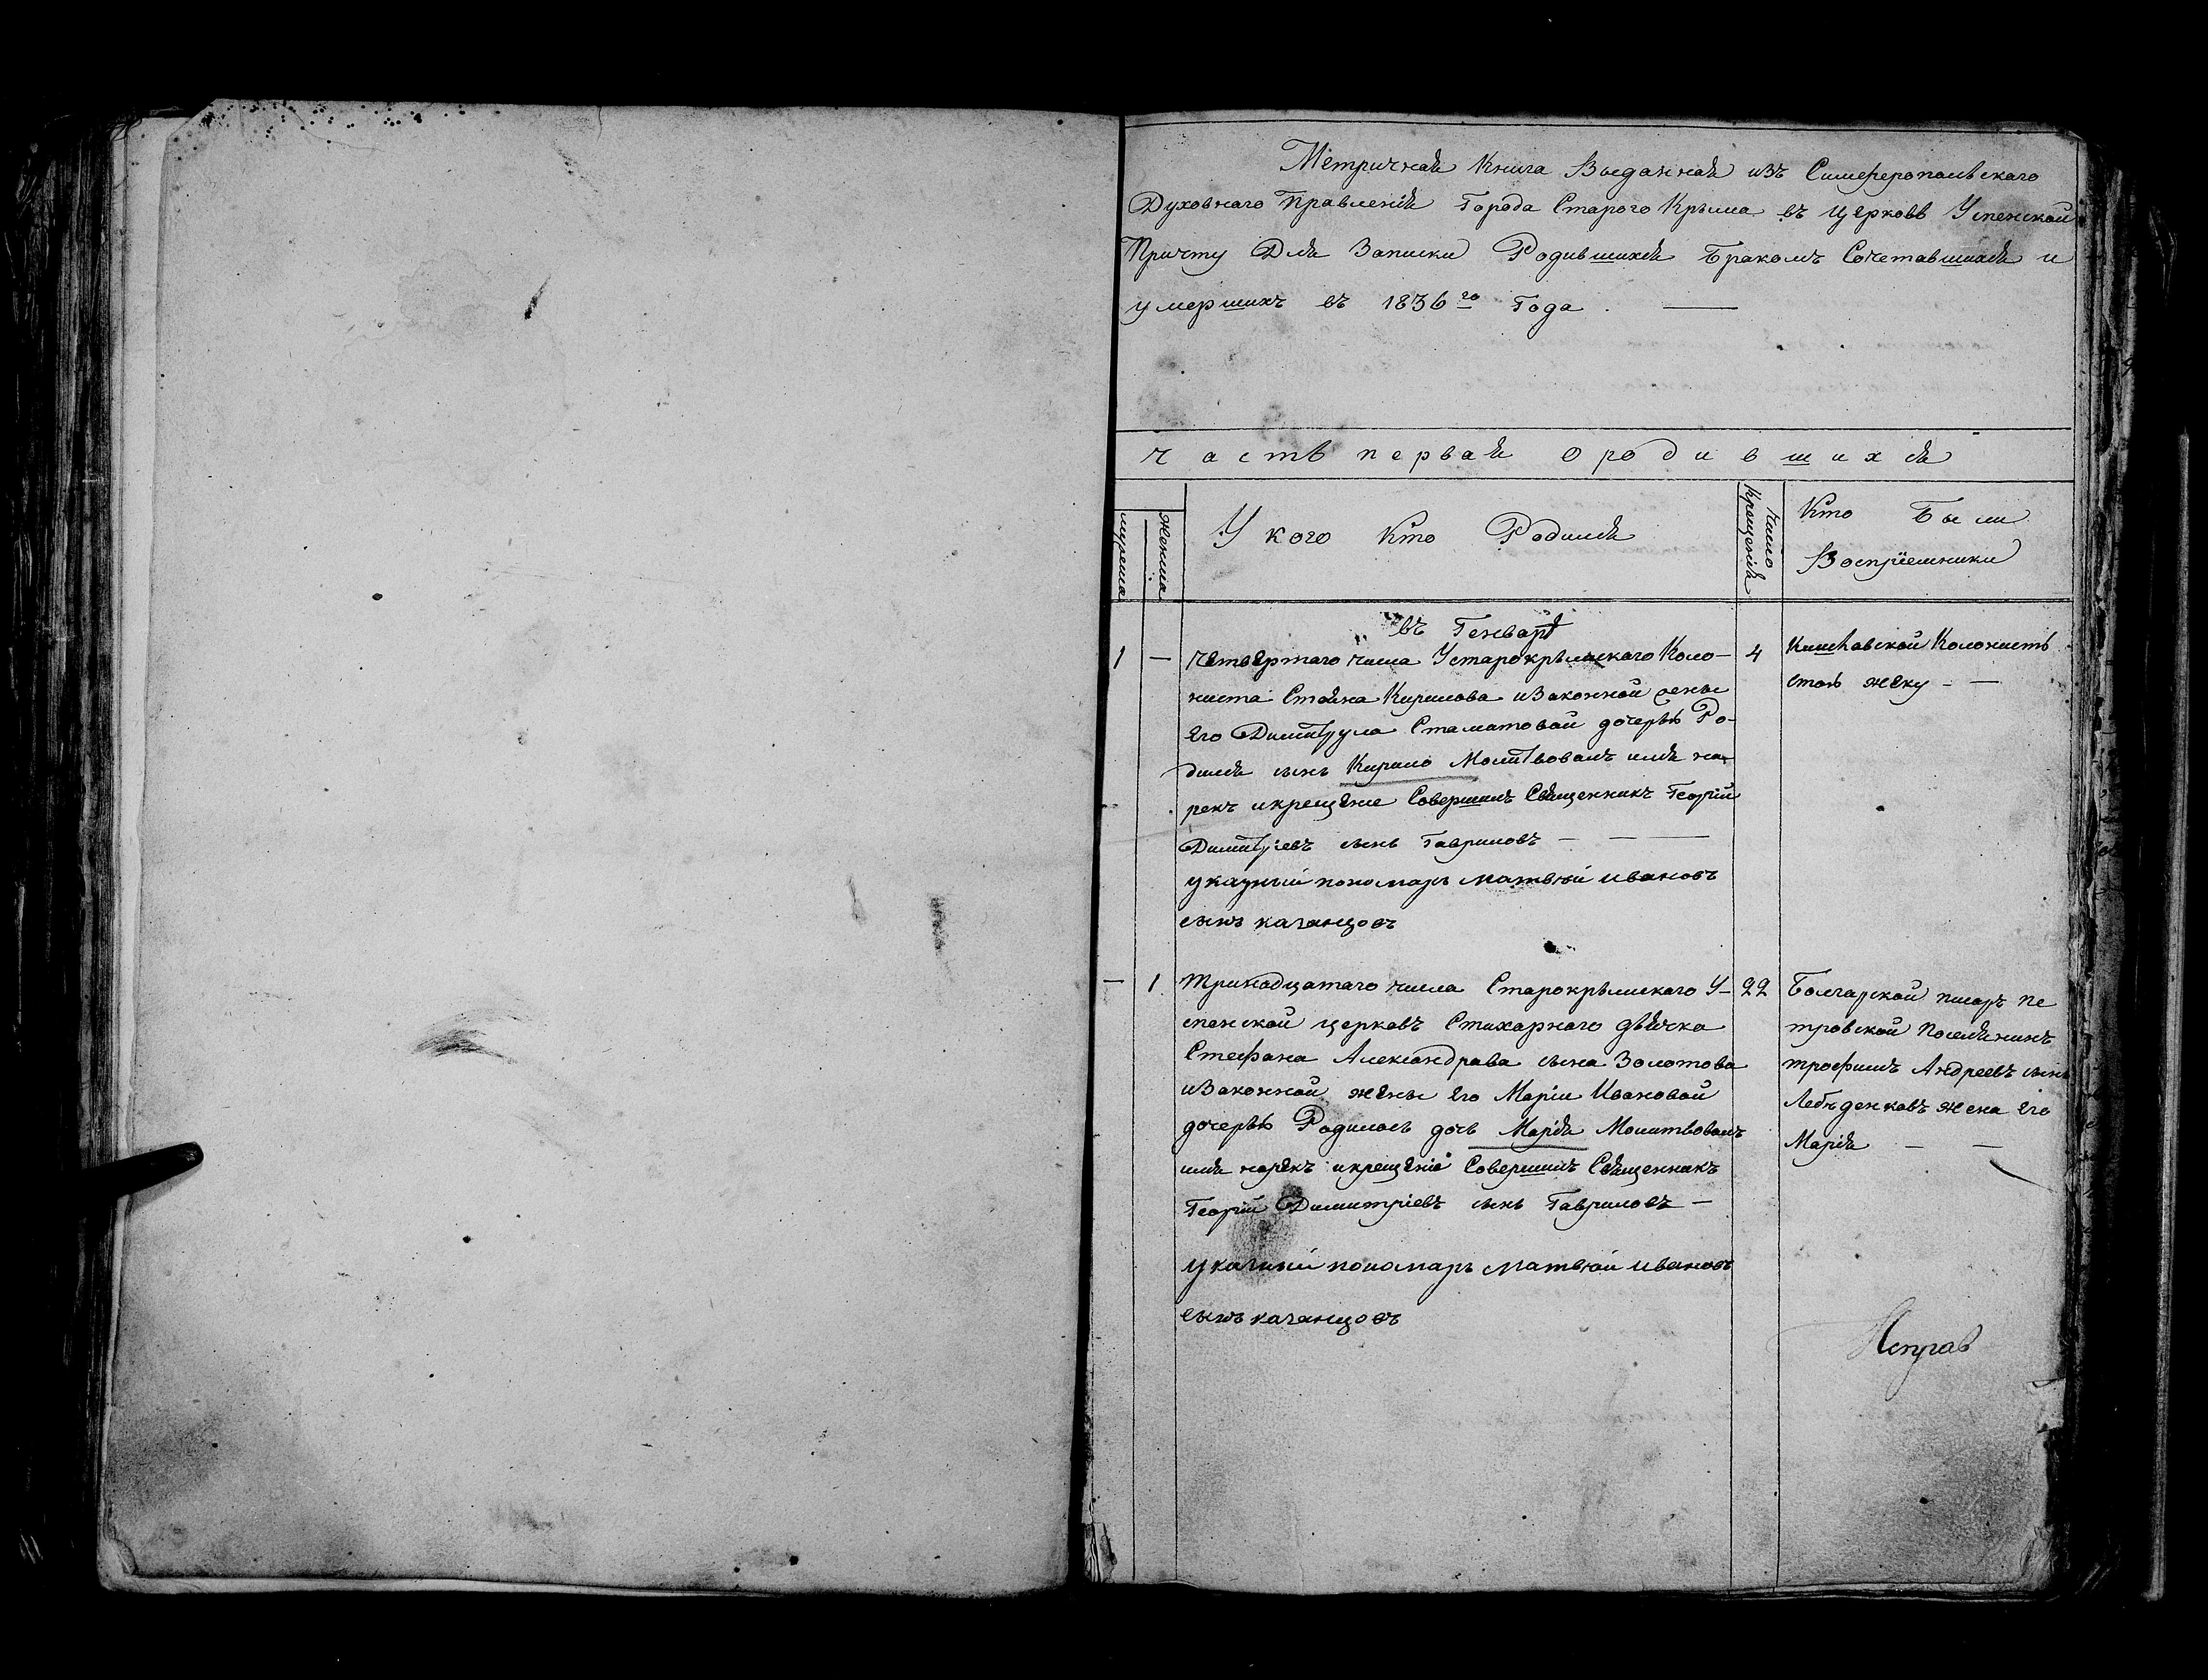 Метричная Книга Выданная изъ Симферопольскаго
Духовнаго Правленія Города Старого Крыма въ Церковь Успенской
Причту Для Записки Родившихся Бракомъ Сочетавшихся и
умершихъ въ 1836го Года . —
Часть первая о родившихся
мужеска
женска
У кого Кто Родился
Число
Крещенія
Кто Были
Воспріемники
въ Генваря
1 — четвертаго числа Устарокрымскаго Коло- 4
ниста Стояна Кирилова иЗаконной жены
Его Димитрула Стаматовой дочерью Ро-
дился сынъ Кирило Молитвовалъ имя на
рекъ икрещение Совершилъ Священникъ Георгій
Димитріевъ сынъ Гавриловъ —
указный пономарь матвюй ивановъ
сынъ каганцовъ
Колонистъ
стоя жеку - —
— 1 тринадцатаго числа Старокрымскаго У- 22
спенской церковъ Стихарного дьячка
Стефана Александрава сына Золотова
иЗаконной жены Его Маріи Ивановой
дочерью Родилась дочь Марія Молитвовалъ
имя нарекъ икрещеніе Совершилъ Священникъ
Георгій Димитріевъ сынъ Гавриловъ —
указный пономарь матвюй ивановъ
сынъ каганцовъ
Болгарской писарь пе
тровской Поселянинъ
трофимъ Андреевъ сынъ
Лебѣденковъ жена Его
Марія — —